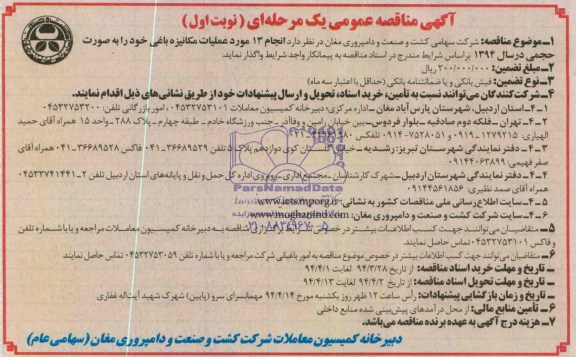 آگهی مناقصه عمومی یک مرحله‌ای (نوبت اول)
۱ـ موضوع مناقصه: شرکت سهامی کشت و صنعت و دامپروری مغان در نظر دارد انجام ۱۳ مورد عملیات مکانیزه باغی خود را به صورت
حجمی در سال ۱۳۹۴ براساس شرایط مندرج در اسناد مناقصه به پیمانکار واجد شرایط واگذار نماید.
۲ـ مبلغ تضمین: ۲۰۰/۰۰۰/۰۰۰ ریال
۳ـ نوع تضمین: فیش بانکی و یا ضمانتنامه بانکی (حداقل با اعتبار سه ماه)
۴ـ شرکت‌کنندگان می‌توانند نسبت به تأمین، خرید اسناد، تحویل و ارسال پیشنهادات خود از طریق نشانی‌های ذیل اقدام نمایند.
۱ـ۴ـ استان اردبیل، شهرستان پارس‌آباد مغان ـ اداره مرکزی؛ دبیرخانه کمیسیون معاملات ۰۴۵۳۲۷۵۳۱۰۱، امور بازرگانی تلفن ۰۴۵۳۲۷۵۳۲۰۰
۲ـ۴ـ تهران ـ فلکه دوم صادقیه ـ بلوار فردوس ـ بین خیابان رامین و وفاآذر ـ جنب ورزشگاه خادم ـ طبقه چهارم ـ پلاک ۲۸۸ ـ واحد ۱۵ همراه آقای حمید
الهیاری: ۱۲۷۹۲۱۵ـ۰۹۱۹ و ۷۵۲۸۰۵۱ـ۰۹۱۴ تلفکس
۳ـ۴ـ دفتر نمایندگی شهرستان تبریز: رشدیه ـ خیابان گلستان کوی دوازدهم پلاک ۵ تلفن ۳۶۶۸۹۵۲۹ـ۰۴۱ فاکس ۳۶۶۸۹۵۲۸ـ۰۴۱ همراه آقای
صفر فهیمی: ۰۹۱۴۴۰۶۳۸۹۹
۴ـ۴ـ دفتر نمایندگی شهرستان اردبیل ـ شهرک کارشناسان ـ مجتمع اداری ـ روبروی اداره کل حمل و نقل و پایانه‌های استان اردبیل تلفن ۲ـ۰۴۵۳۳۷۴۱۴۴۱
همراه آقای صمد نظیری: ۰۹۱۴۴۵۶۱۸۵۶
۵ـ۴ـ سایت اطلاع‌رسانی ملی مناقصات کشور به نشانی: www.ietsmporg.ir
۶ـ۴ـ سایت شرکت کشت و صنعت و دامپروری مغان: www.moghanind.com
۵ـ متقاضیان می‌توانند جهت کسب اطلاعات بیشتر در خصوص شرایط برگزاری مناقصه به دبیرخانه کمیسیون معاملات مراجعه و یا با شماره تلفن
و فاکس ۰۴۵۳۲۷۵۳۱۰۱ تماس حاصل نمایند.
۶ـ متقاضیان می‌توانند جهت کسب اطلاعات بیشتر در خصوص موضوع مناقصه به امور باغبانی شرکت مراجعه و یا با شماره تلفن ۰۴۵۳۲۷۵۳۰۵۹ تماس حاصل نمایند.
ـ تاریخ و مهلت خرید اسناد مناقصه: از تاریخ ۹۴/۳/۲۸ لغایت ۹۴/۴/۱
ـ تاریخ و مهلت تحویل اسناد مناقصه: از تاریخ ۹۴/۴/۲ لغایت ۹۴/۴/۱۳
ـ تاریخ و زمان بازگشایی پیشنهادات: رأس ساعت ۱۲ ظهر روز یکشنبه مورخ ۹۴/۴/۱۴ مهمانسرای سرو (پایین) شهرک شهید آیت‌اله غفاری
۶ـ تأمین منابع مالی: از محل درآمدهای پیش‌بینی شده منابع داخلی
۷ـ هزینه درج آگهی به عهده برنده مناقصه می‌باشد.
دبیرخانه کمیسیون معاملات شرکت کشت و صنعت و دامپروری مغان (سهامی عام)
ParsNamadData
۰۲۱-۸۸۳۴۹۶۷۰-۵